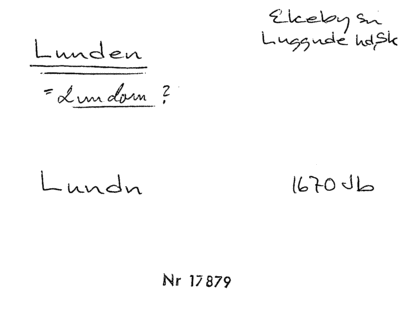 Ekeby sn
Luggude hd, Sk
Lunden
= Lundom ?
Lundn
1670 Jb
Nr 17879